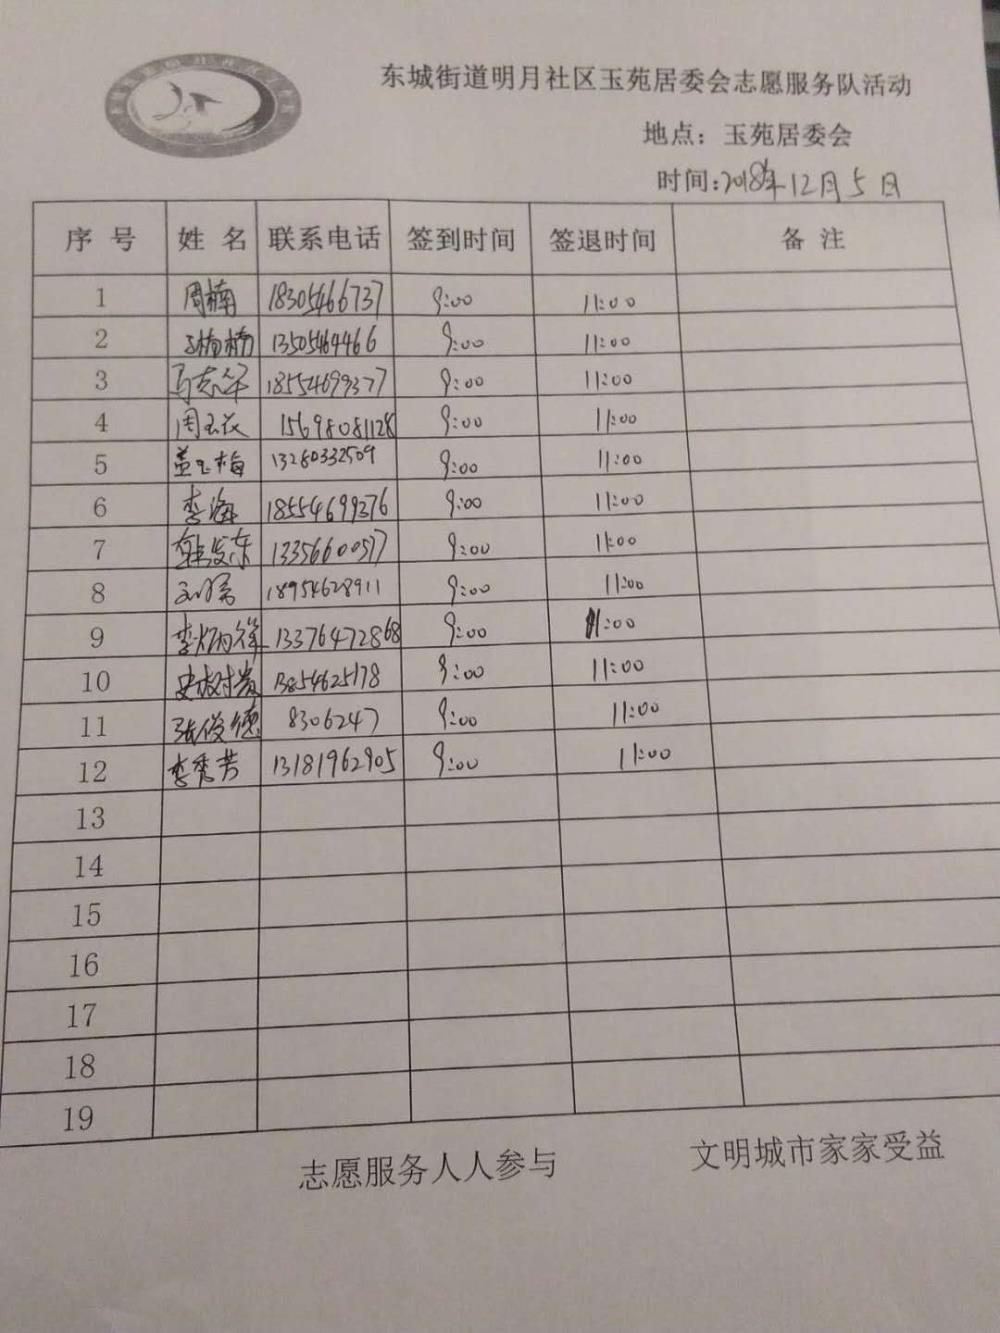 东城街道明月社区玉苑居委会志愿服务队活动
地点：玉苑居委会
时间：2018年12月5日
序号 姓名 联系电话 签到时间 签退时间 备注
1 周楠 18305466737 9:00 11:00
2 楠楠 13505464466 9:00 11:00
3 马志华 18554699377 9:00 11:00
4 周玉花 15698081128 9:00 11:00
5 盖玉梅 13280332509 9:00 11:00
6 李海 18554699376 9:00 11:00
7 韩发东 13356600577 9:00 11:00
8 18954628911 9:00 11:00
9 李炳锋 13376472868 9:00 11:00
10 史树贵 13854625178 9:00 11:00
11 张俊德 8306247 9:00 11:00
12 李秀芳 13181962905 9:00 11:00
13
14
15
16
17
18
19
志愿服务人人参与 文明城市家家受益